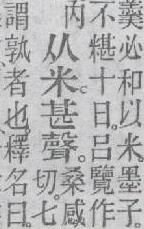 羹必和以米。墨子。
不糂十日。呂覽作
从米甚聲。桑感切。七
謂孰者也。釋名曰